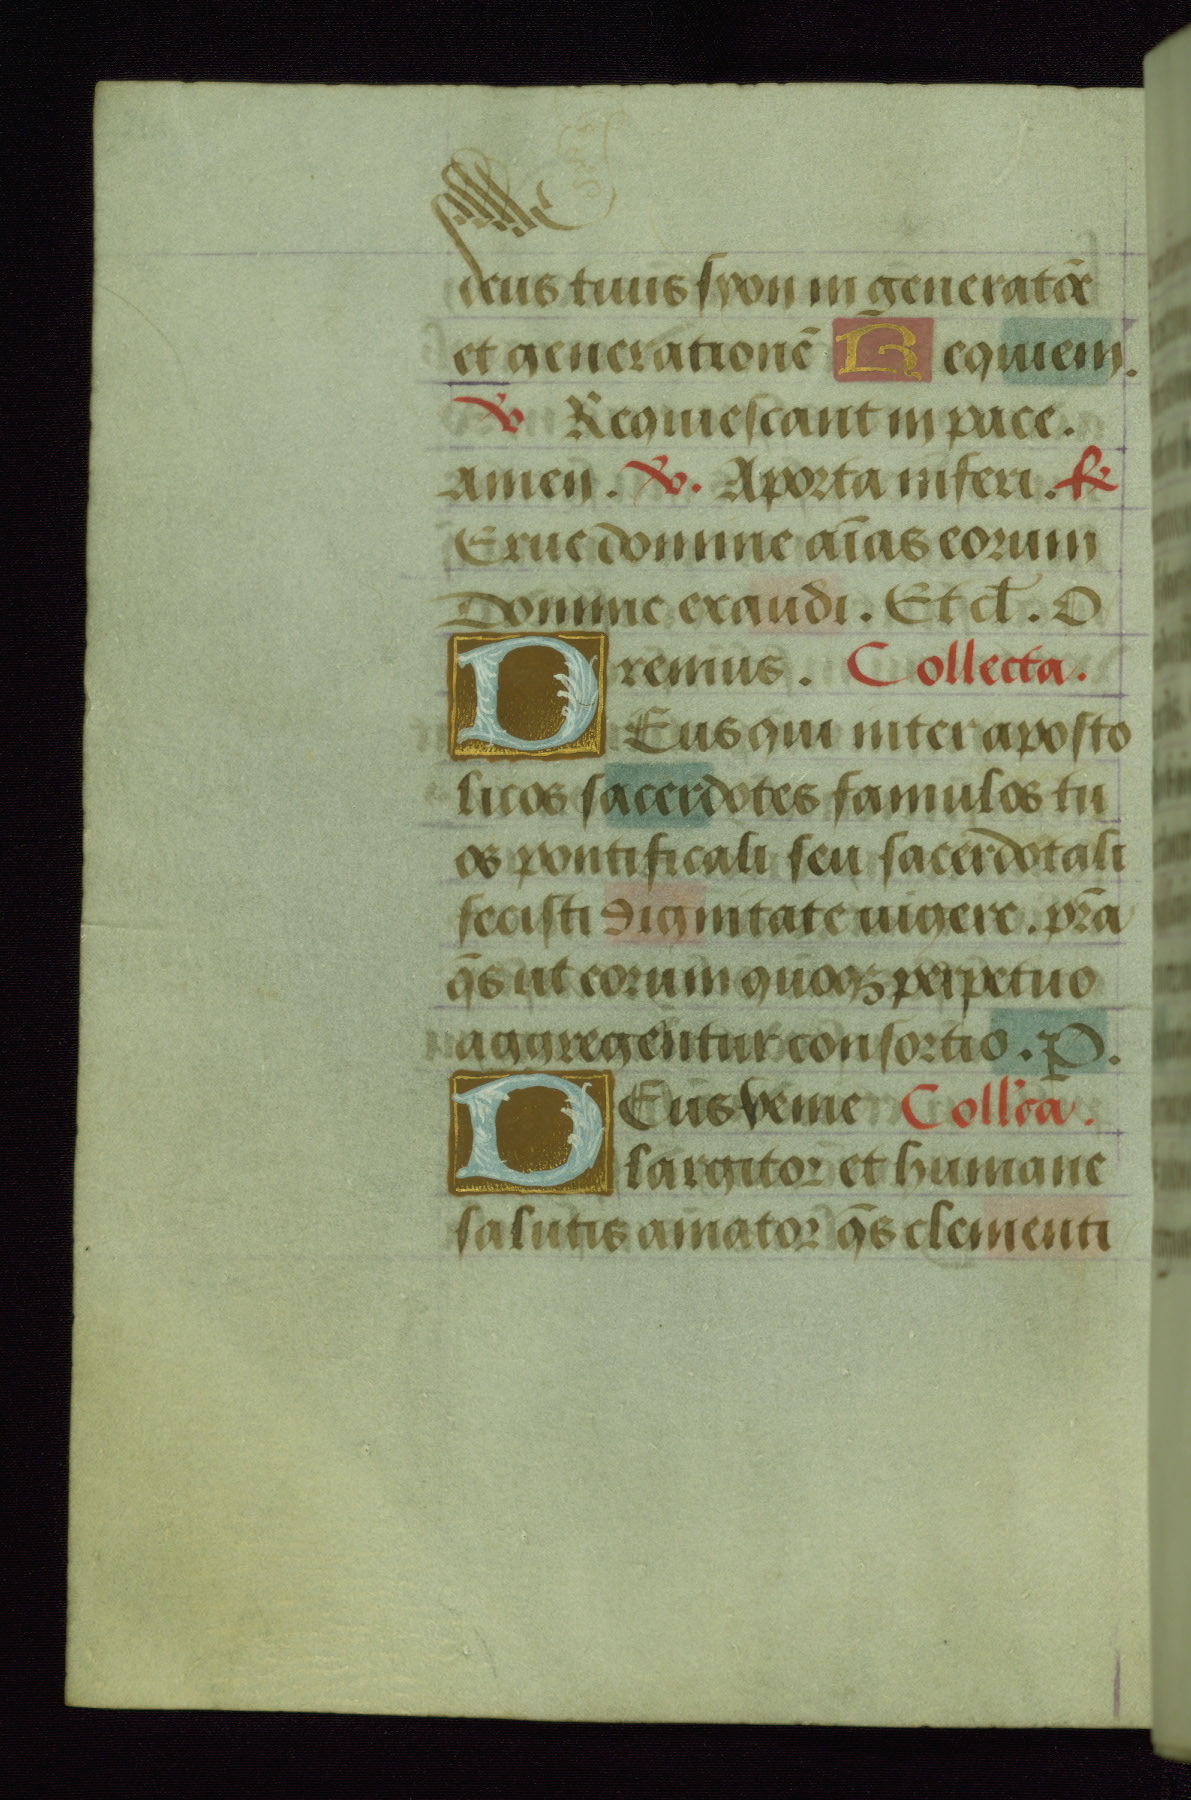 deus tuus syon in generatōe
et generationē Requiem.
℣ Requiescant in pace.
Amen. ℣. Aporta inferi. ℟
Erue domine aīas eorum
Domine exaudi. Et cl̄. O
remus. Collecta.
DEus qui inter aposto
licos sacerdotes famulos tu
os pontificali seu sacerdotali
fecisti dignitate uigere. pr̄a
q̄s ut eorum quoqꝫ perpetuo
aggregentur consortio. P.
DEus venie Coll'cā.
largitor et humane
salutis amator q̄s clementi